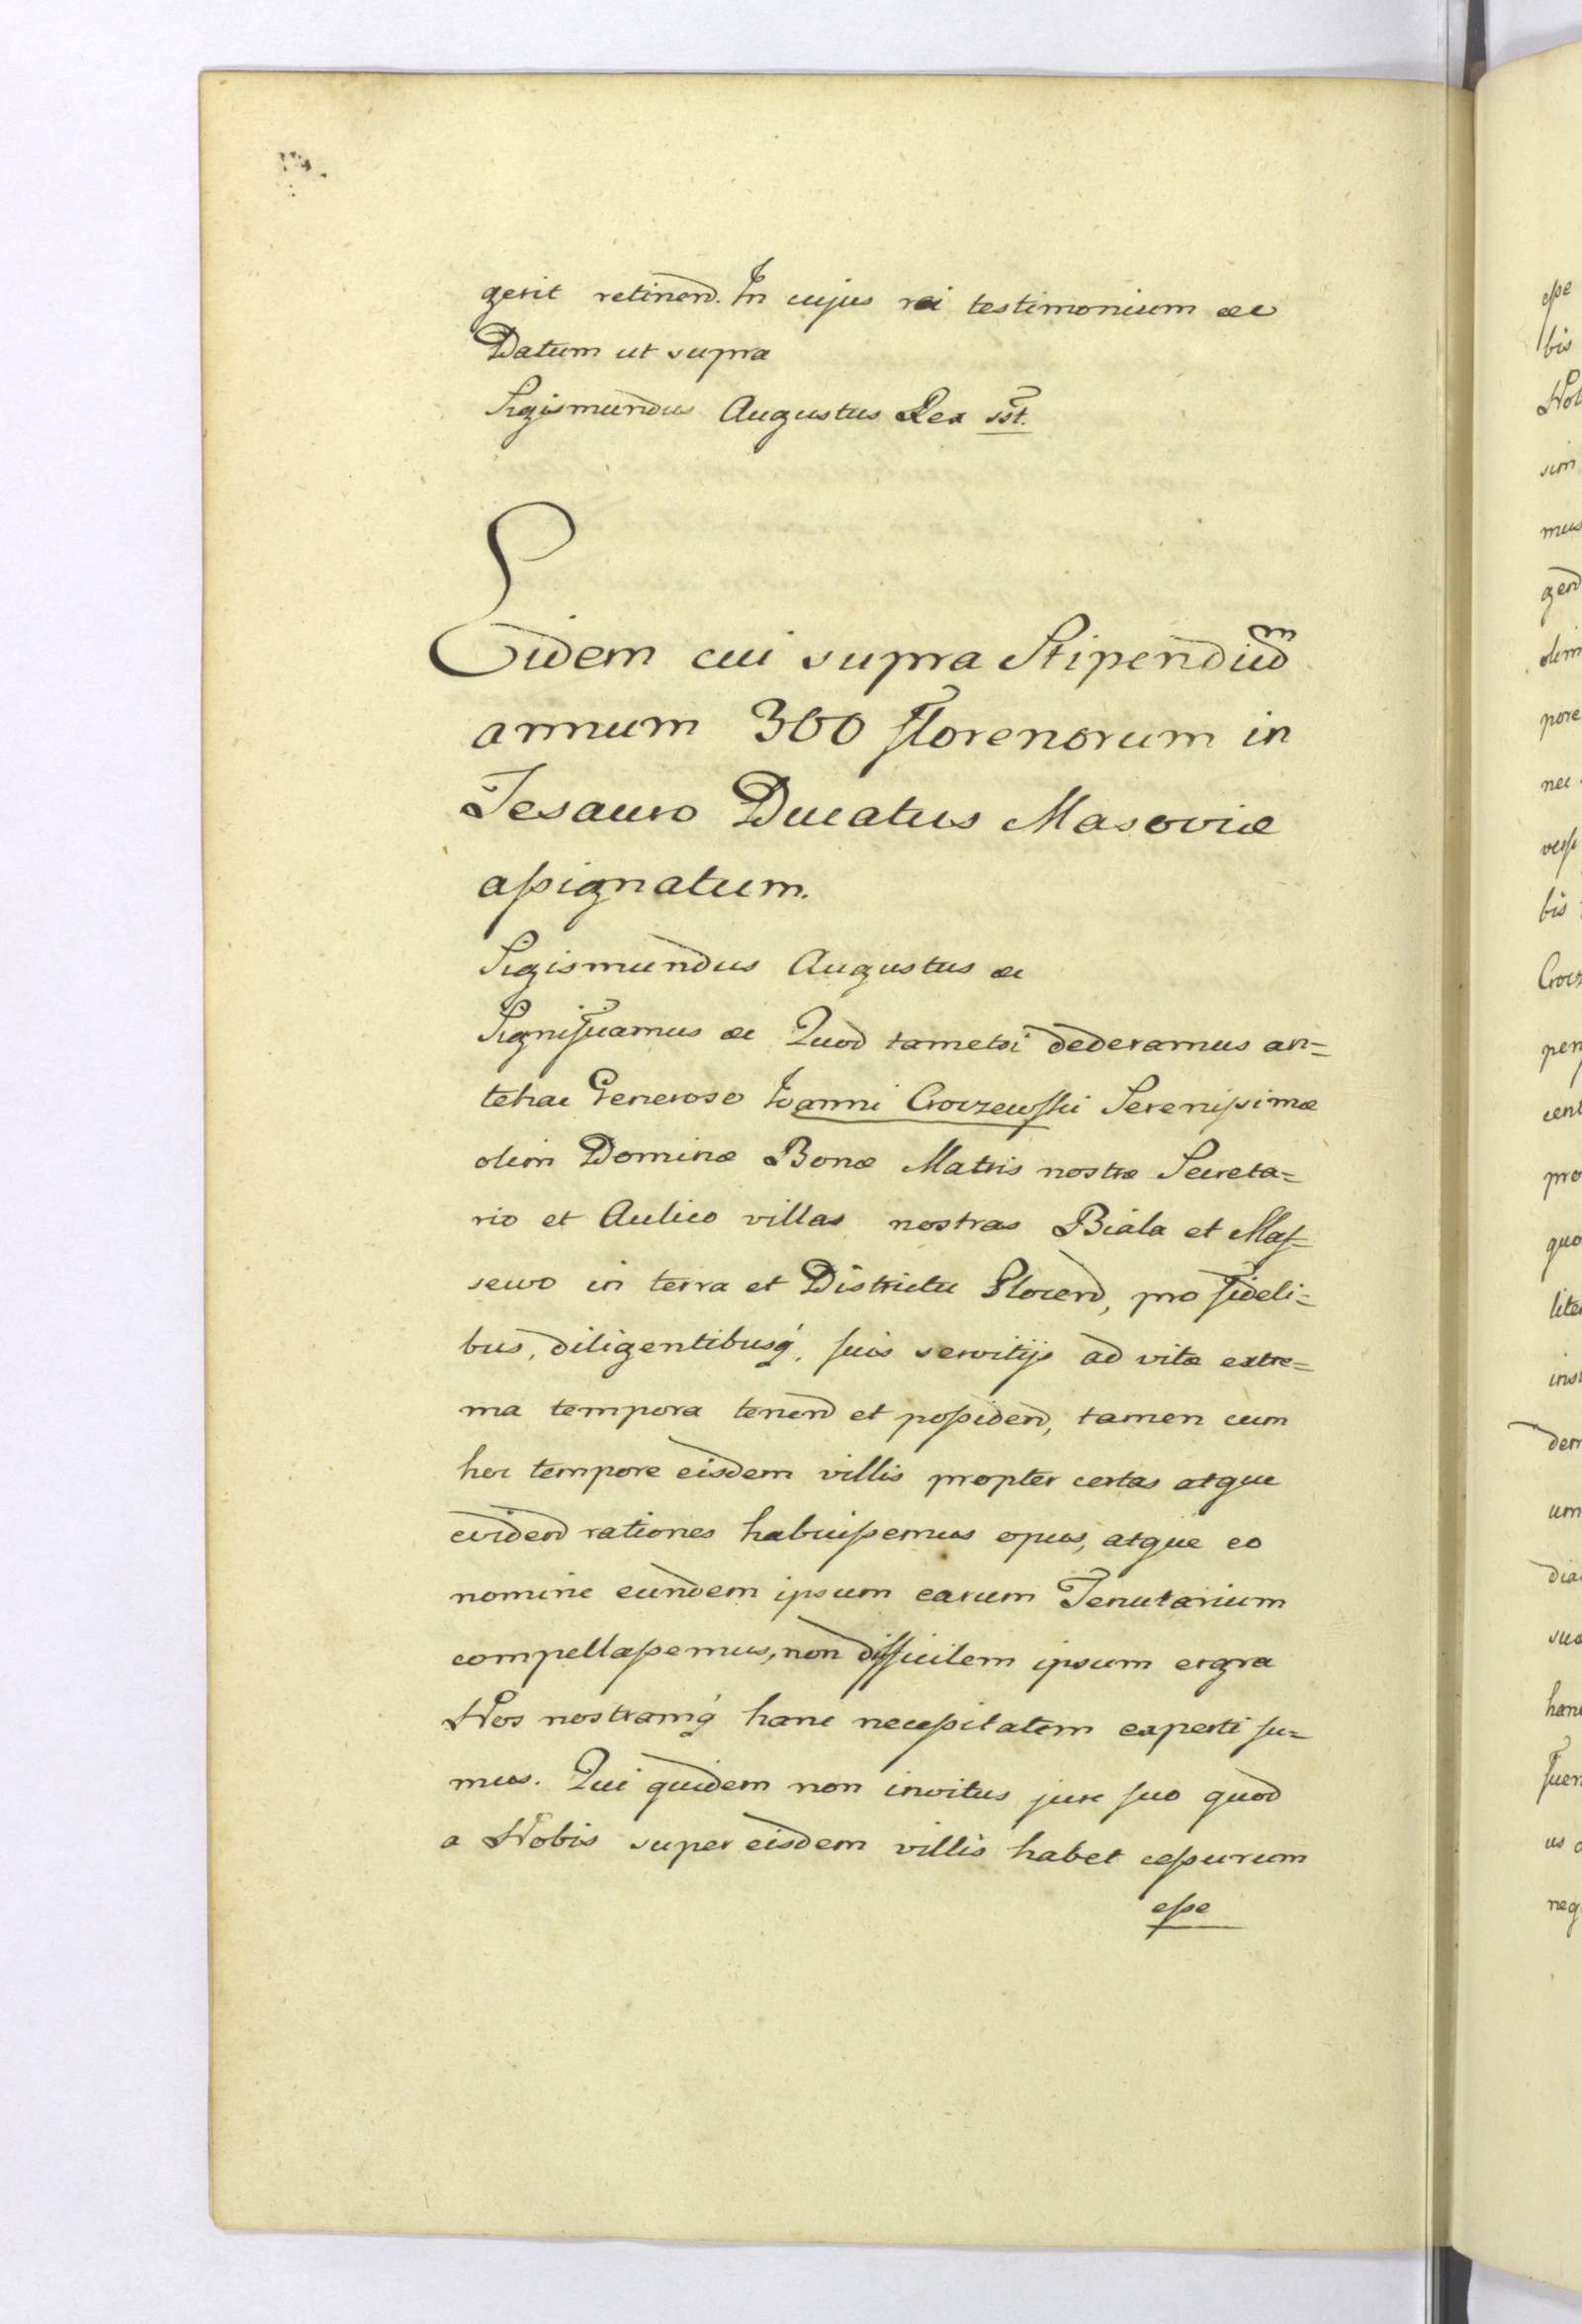 gerit retinend. In cujus rei testimonium &c
Datum ut supra
Sigismundus Augustus Rex sst.
Eidem cui supra Stipendium
annum 300 florenorum in
Tesauro Ducatus Masoviæ
assignatum.
Sigismundus Augustus &c
Significamus &c Quod tametsi dederamus an=
tehac Generoso Joanni Croczewski Serenissimæ
olim Dominæ Bonæ Matris nostræ Secreta=
rio et Aulico villas nostras Biala et Mas=
sewo in terra et Districtu Plocend, pro fideli=
bus, diligentibusq, suis servitijs ad vitæ extre=
ma tempora tenend et possidend, tamen cum
hoc tempore eisdem villis propter certas atque
evidend rationes habuissemus opus, atque eo
nomine eundem ipsum earum Tenutarium
compellassemus, non difficilem ipsum ergra
Nos nostramq hanc necessitatem experti su=
mus. Qui quidem non invitus jure suo quod
a Nobis super eisdem villis habet cessurum
esse
esse
bis
Nob
sim
mus
gend
olim
pore
nec
bis
Crocz
per
cent
pro
quo
lite
inst
dem
um
dia
suo
hanc
fuer
us
neq